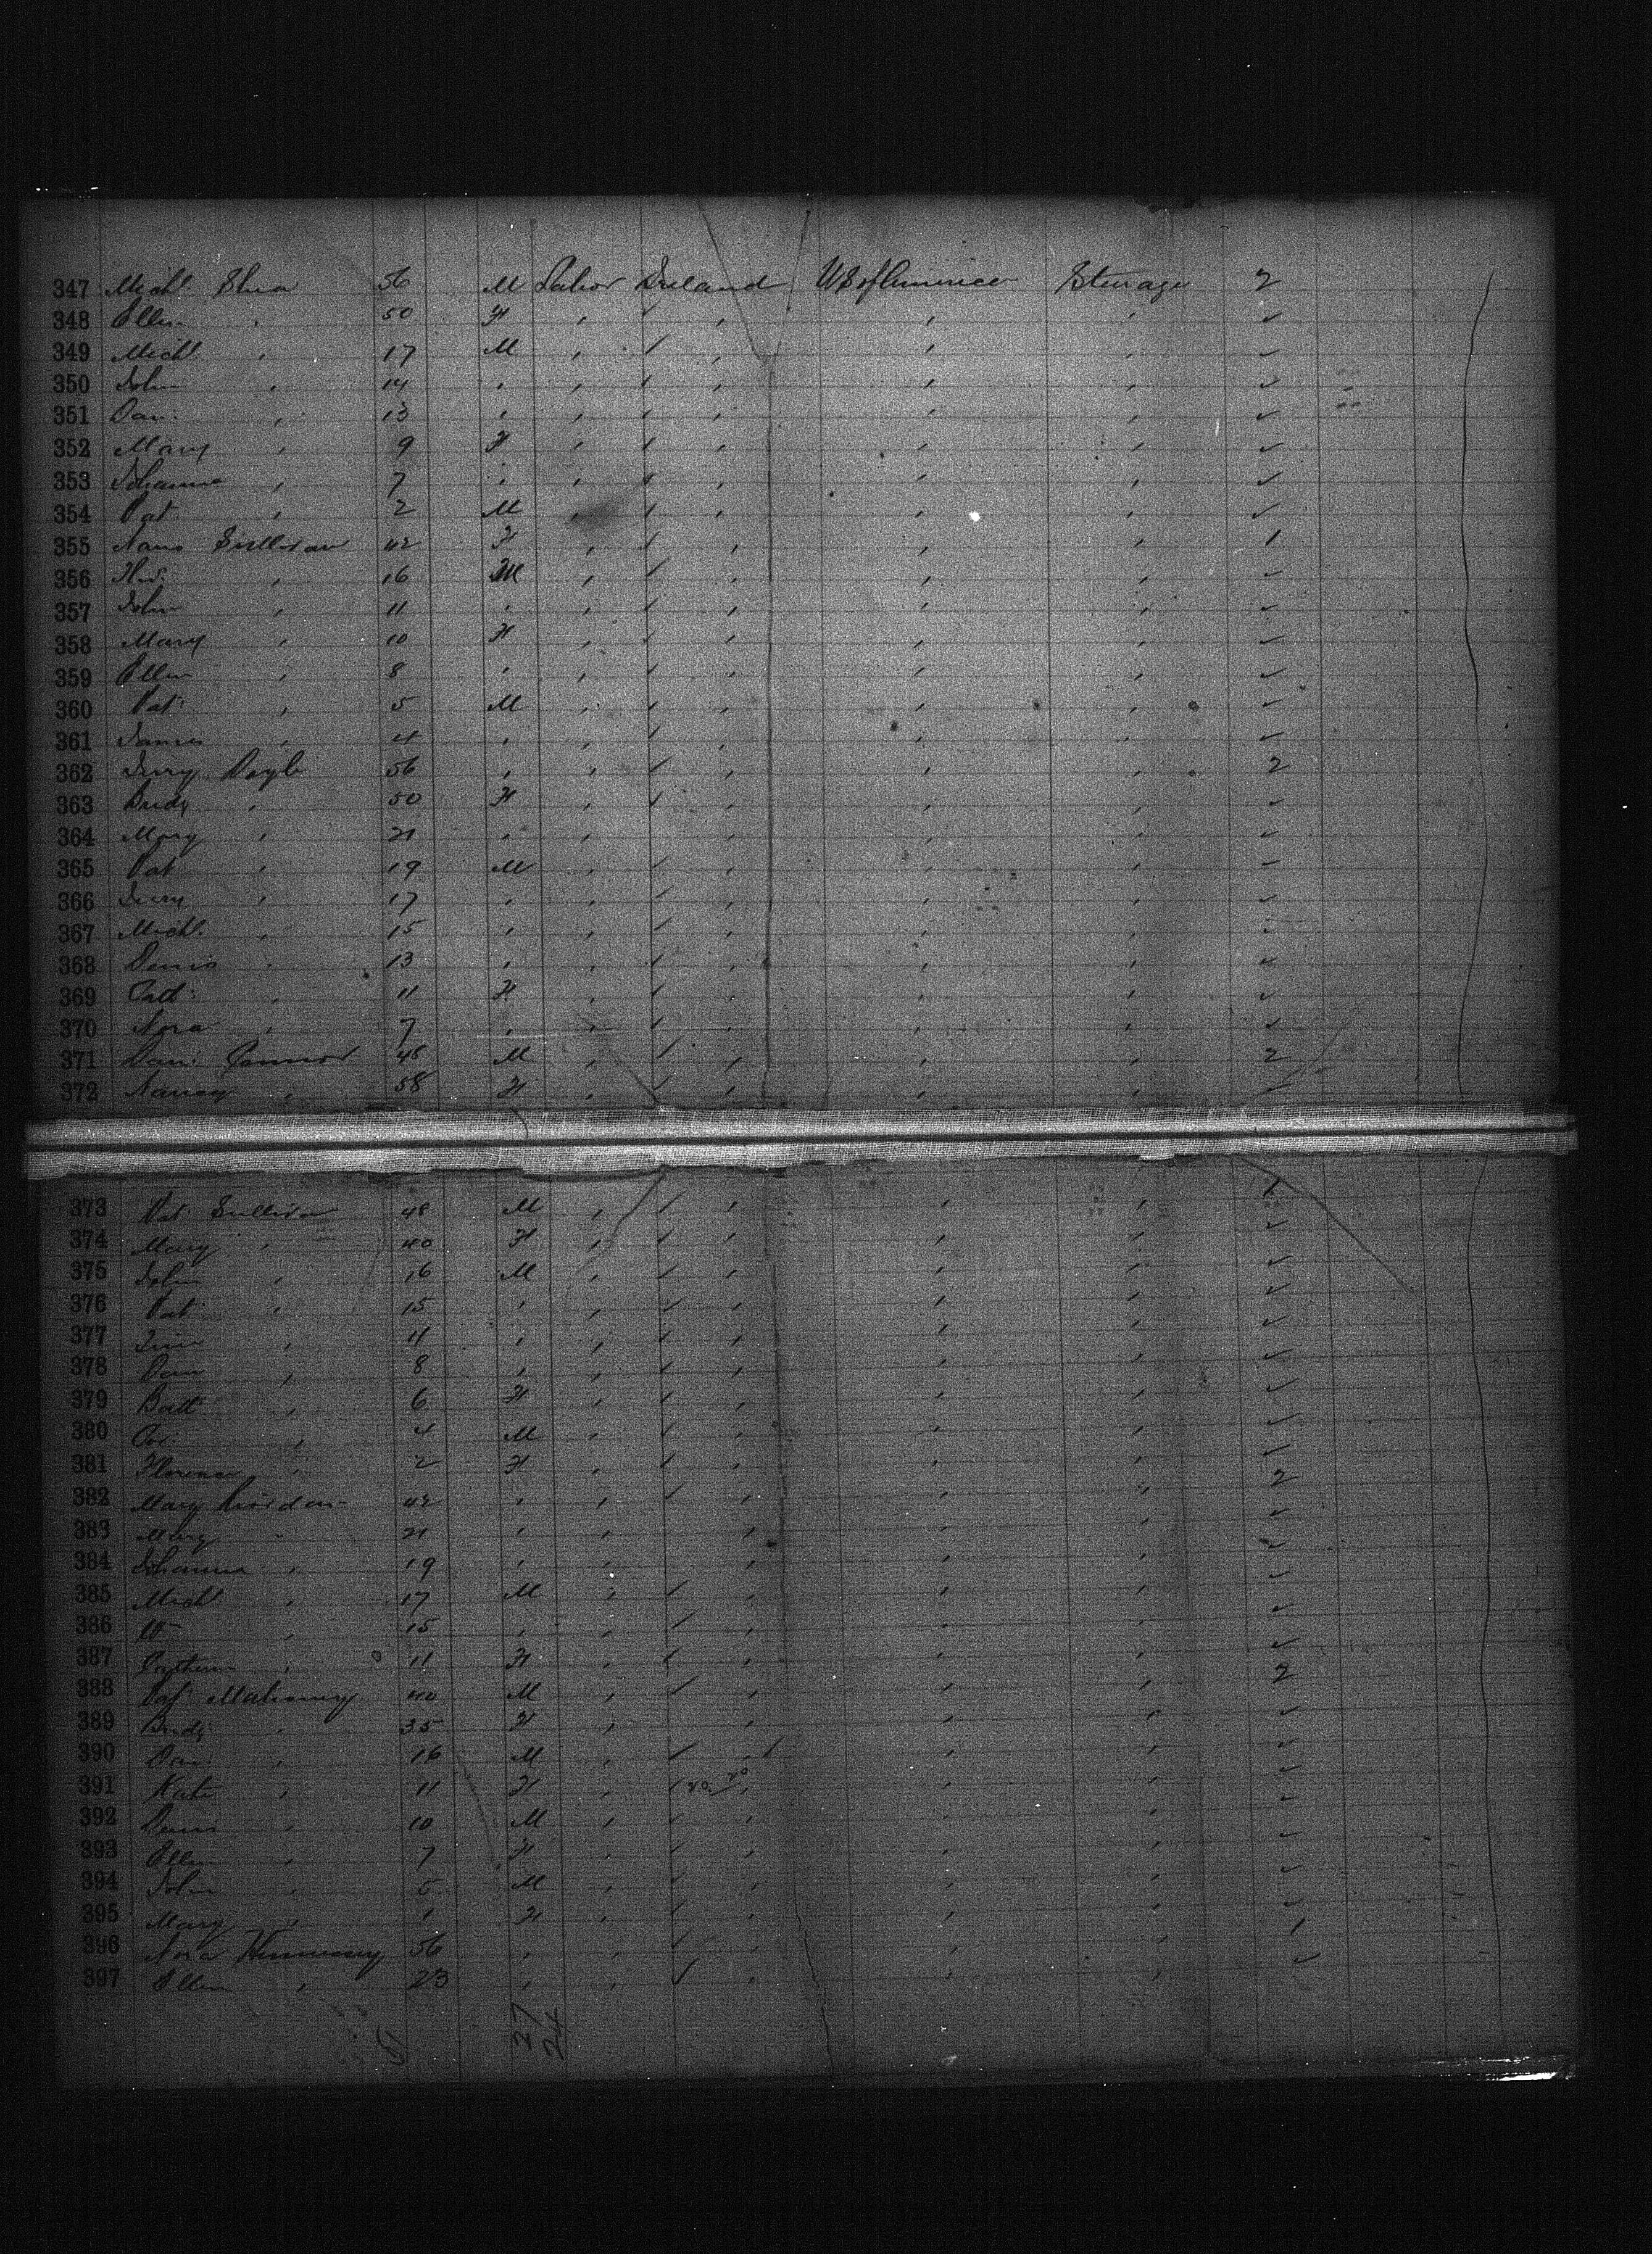 347 Michl Shea 56 M Labor Ireland US of America Steerage 2
348 Ellen " 50 F " ✓ " " " ✓
349 Michl " 17 M " ✓ " " " ✓
350 John " 14 " " ✓ " " " ✓
351 Dan: " 13 " " ✓ " " " ✓
352 Mary " 9 F " ✓ " " " ✓
353 Johanna " 7 " " ✓ " " " ✓
354 Pat " 2 M " ✓ " " " ✓
355 Sullivan 42 F " ✓ " " " 1
356 " 16 M " ✓ " " " ✓
357 John " 11 " " ✓ " " " ✓
358 Mary " 10 F " ✓ " " " ✓
359 Ellen " 8 " " ✓ " " " ✓
360 Pat: " 5 M " ✓ " " " ✓
361 James " 4 " " ✓ " " " ✓
362 Jerry Doyle 56 " " ✓ " " " 2
363 Bridg " 50 F " ✓ " " " ✓
364 Mary " 21 " " " " " ✓
365 Pat " 19 M " ✓ " " " ✓
366 Jerry " 17 " " ✓ " " " ✓
367 Michl. " 15 " " ✓ " " " ✓
368 Denis " 13 " " ✓ " " " ✓
369 " 11 F " ✓ " " " ✓
370 Nora " 7 " " ✓ " " " ✓
371 Dan: Connor 48 M " ✓ " " " 2
372 Nancy " 58 F " ✓ " " " ✓
373 Pat: Sullivan 48 M " ✓ " " " 1
374 Mary " 40 F " ✓ " " " ✓
375 John " 16 M " ✓ " " " ✓
376 Pat " 15 " " ✓ " " " ✓
377 Tim " 11 " " ✓ " " " ✓
378 Dan " 8 " " ✓ " " " ✓
379 Batt " 6 F " ✓ " " " ✓
380 Cor: " 4 M " ✓ " " " ✓
381 Florence " 2 F " ✓ " " " ✓
382 Mary Riordan 42 " " ✓ " " " 2
383 Mary " 21 " " " " " ✓
384 Johanna " 19 " " " " " ✓
385 Michl " 17 M " ✓ " " ✓
386 " 15 " " ✓ " " " ✓
387 " 11 F " ✓ " " " ✓
388 Pat: Mahoney 40 M " ✓ " " " 2
389 Bridg: " 35 F " " " " ✓
390 Dan: " 16 M " ✓ " " " ✓
391 Kate " 11 F " ✓ " " " ✓
392 Denis " 10 M " ✓ " " " ✓
393 Ellen " 7 F " ✓ " " " ✓
394 John " 5 M " ✓ " " " ✓
395 Mary " 1 F " ✓ " " " ✓
396 Nora Hennessy 56 " " ✓ " " " 1
397 Ellen " 23 " " ✓ " " " ✓
27
24